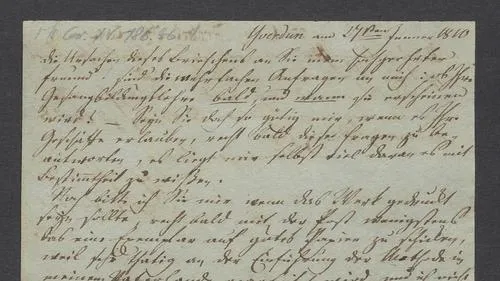 Yverdun am 27ten Jenner 1810
die Ursachen dieses Briefchens an Sie mein hochverehrter
Freund! sind die mehrfachen Anfragen an mich: ob Ihre
Gesangbildungslehre bald, und wann sie erscheinen
wird? – Seyn Sie doch so gütig mir, wenn es Ihre
Geschäfte erlauben, recht bald diese Fragen zu be-
antworten, es liegt mir selbst viel daran es mit
Bestimtheit zu wissen.
Noch bitte ich Sie mir wenn das Werk gedruckt
seyn sollte recht bald mit der Post wenigstens
das eine Exemplar auf gutes Papier zu schicken,
weil sehr thätig an der Einführung der Methode in
meinem Vaterlande wird und ich nicht